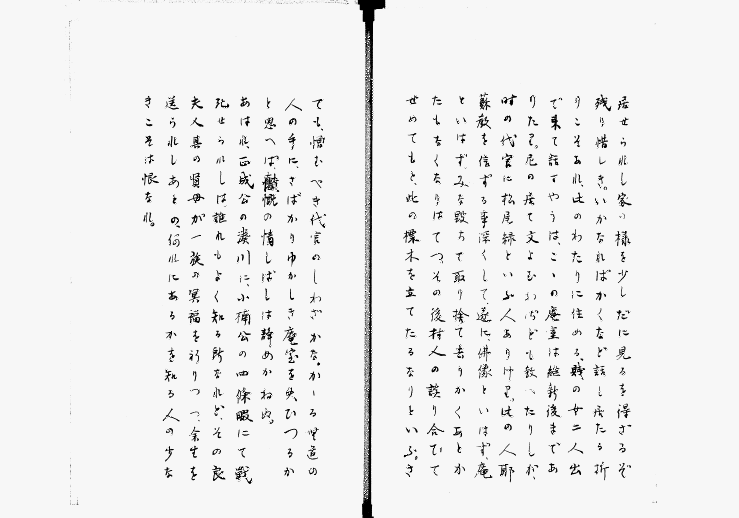 居せられし家の様を少しだに見るを得ざるぞ
残り惜しき。いかなればかくなど話し居たる折
りこそあれ、此のわたりに住める、賤の女二人出
で来て話すやうは、こゝの庵室は維新後まであ
りたり。尼の居て文よむわざども教へたりしが、
時の代官に松尾縁といふ人ありけり。此の人耶
蘇教を信ずる事深くして、遂に、佛像といはず、庵
といはず、みな毀ちて取り捨て去りかくあとか
たもなくなりはてつ。その後村人の談り合ひて
せめてもと、此の標木を立てたるなりといふ。さ
ても、憎むべき代官のしわざかな。かゝる無道の
人の手に、さばかりゆかしき庵室を失ひつるか
と思へば、慨の情しばしは辞めかねぬ。
あはれ、正成公の湊川に、小楠公の四條畷にて戦
死せられしは、誰れもよく知る所なれど、その良
夫人其の賢母が一族の冥福を祈りつつ、余生を
送られしあとの、何れにあるかを知る人の少な
きこそは恨なれ。